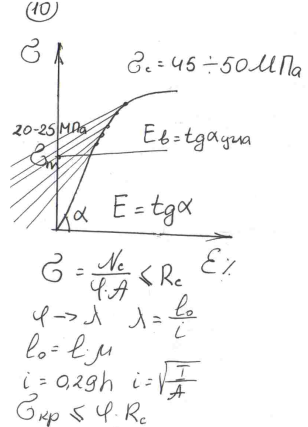 10
σ
σc = 45 ÷ 50 МПа
20-25 МПа
Eв = tgα угла
σт
α E = tgα
ε %
σ = Nc / φ·A ≤ Rc
φ → λ λ = l₀ / i
l₀ = l·μ
i = 0,29h i = √(I / A)
σкр ≤ φ·Rc